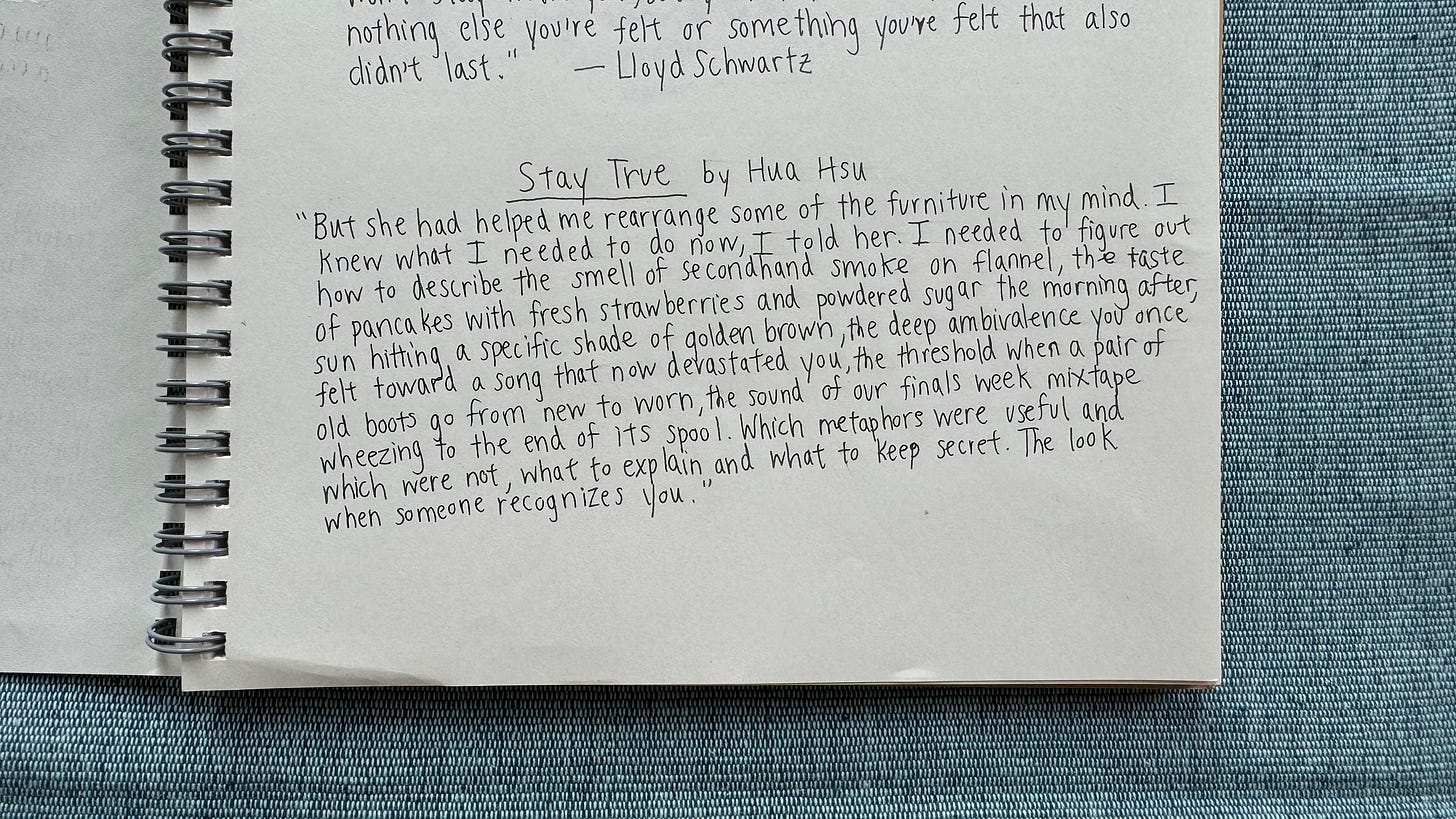 nothing else you're felt or something you're felt that also
didn't last." — Lloyd Schwartz
Stay True by Hua Hsu
"But she had helped me rearrange some of the furniture in my mind. I
knew what I needed to do now, I told her. I needed to figure out
how to describe the smell of secondhand smoke on flannel, the taste
of pancakes with fresh strawberries and powdered sugar the morning after,
sun hitting a specific shade of golden brown, the deep ambivalence you once
felt toward a song that now devastated you, the threshold when a pair of
old boots go from new to worn, the sound of our finals week mixtape
wheezing to the end of its spool. Which metaphors were useful and
which were not, what to explain and what to keep secret. The look
when someone recognizes you."